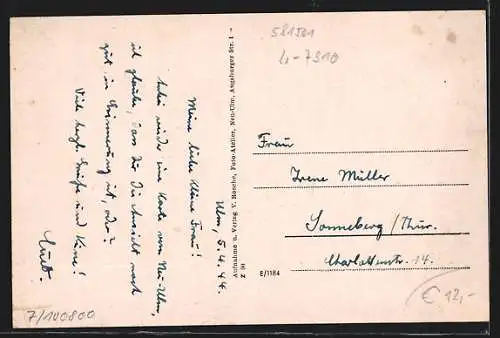 581501
4-7910
Ulm, 5.4.44.
Meine liebe kleine Frau!
Schon wieder eine Karte von Neu-Ulm,
ich glaube, dass Dir die Ansicht noch
gut in Erinnerung ist, oder?
Viele herzl. Grüße und Küsse!
Kurt.
Aufnahme u. Verlag V. Rasche, Foto-Atelier, Neu-Ulm, Augsburger Str. 1
E/1184
Frau
Irene Müller
Sonneberg/Thür.
Charlottenstr. 14.
€ 12,-
7/100800